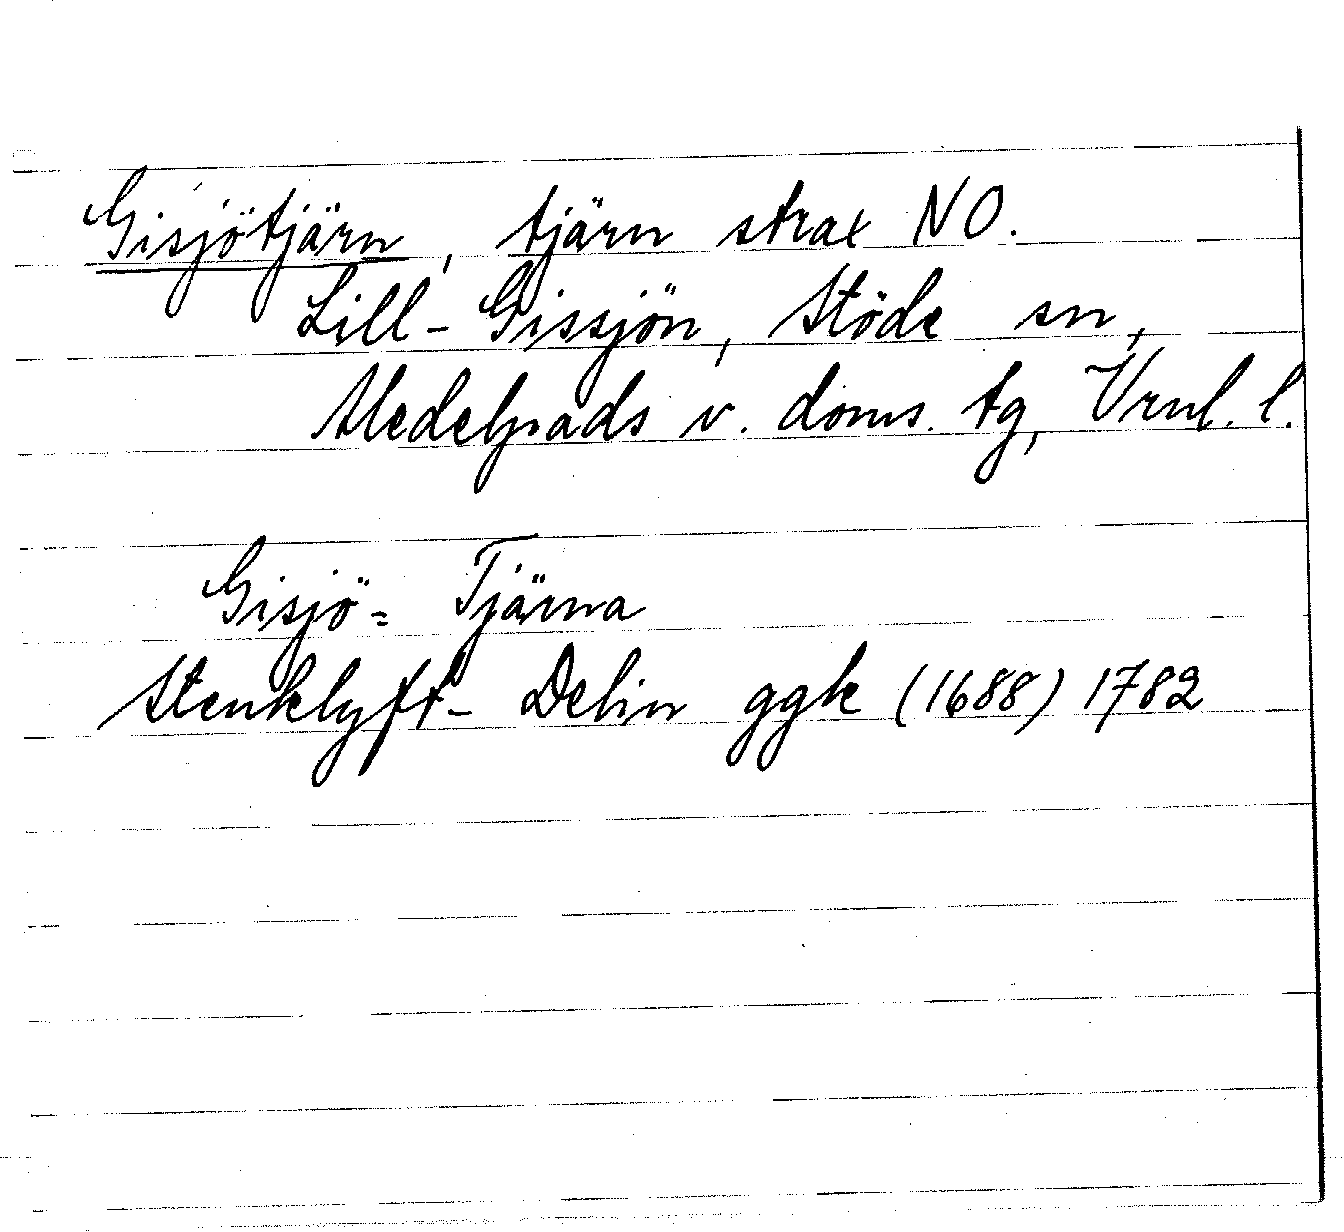 Gisjötjärn, tjärn strax NO.
Lill-Gissjön, Stöde sn,
Medelpads v. doms. tg, Vrnl. l.
Gisjö= Tjärna
Stenklyft- Delin ggk (1688) 1782